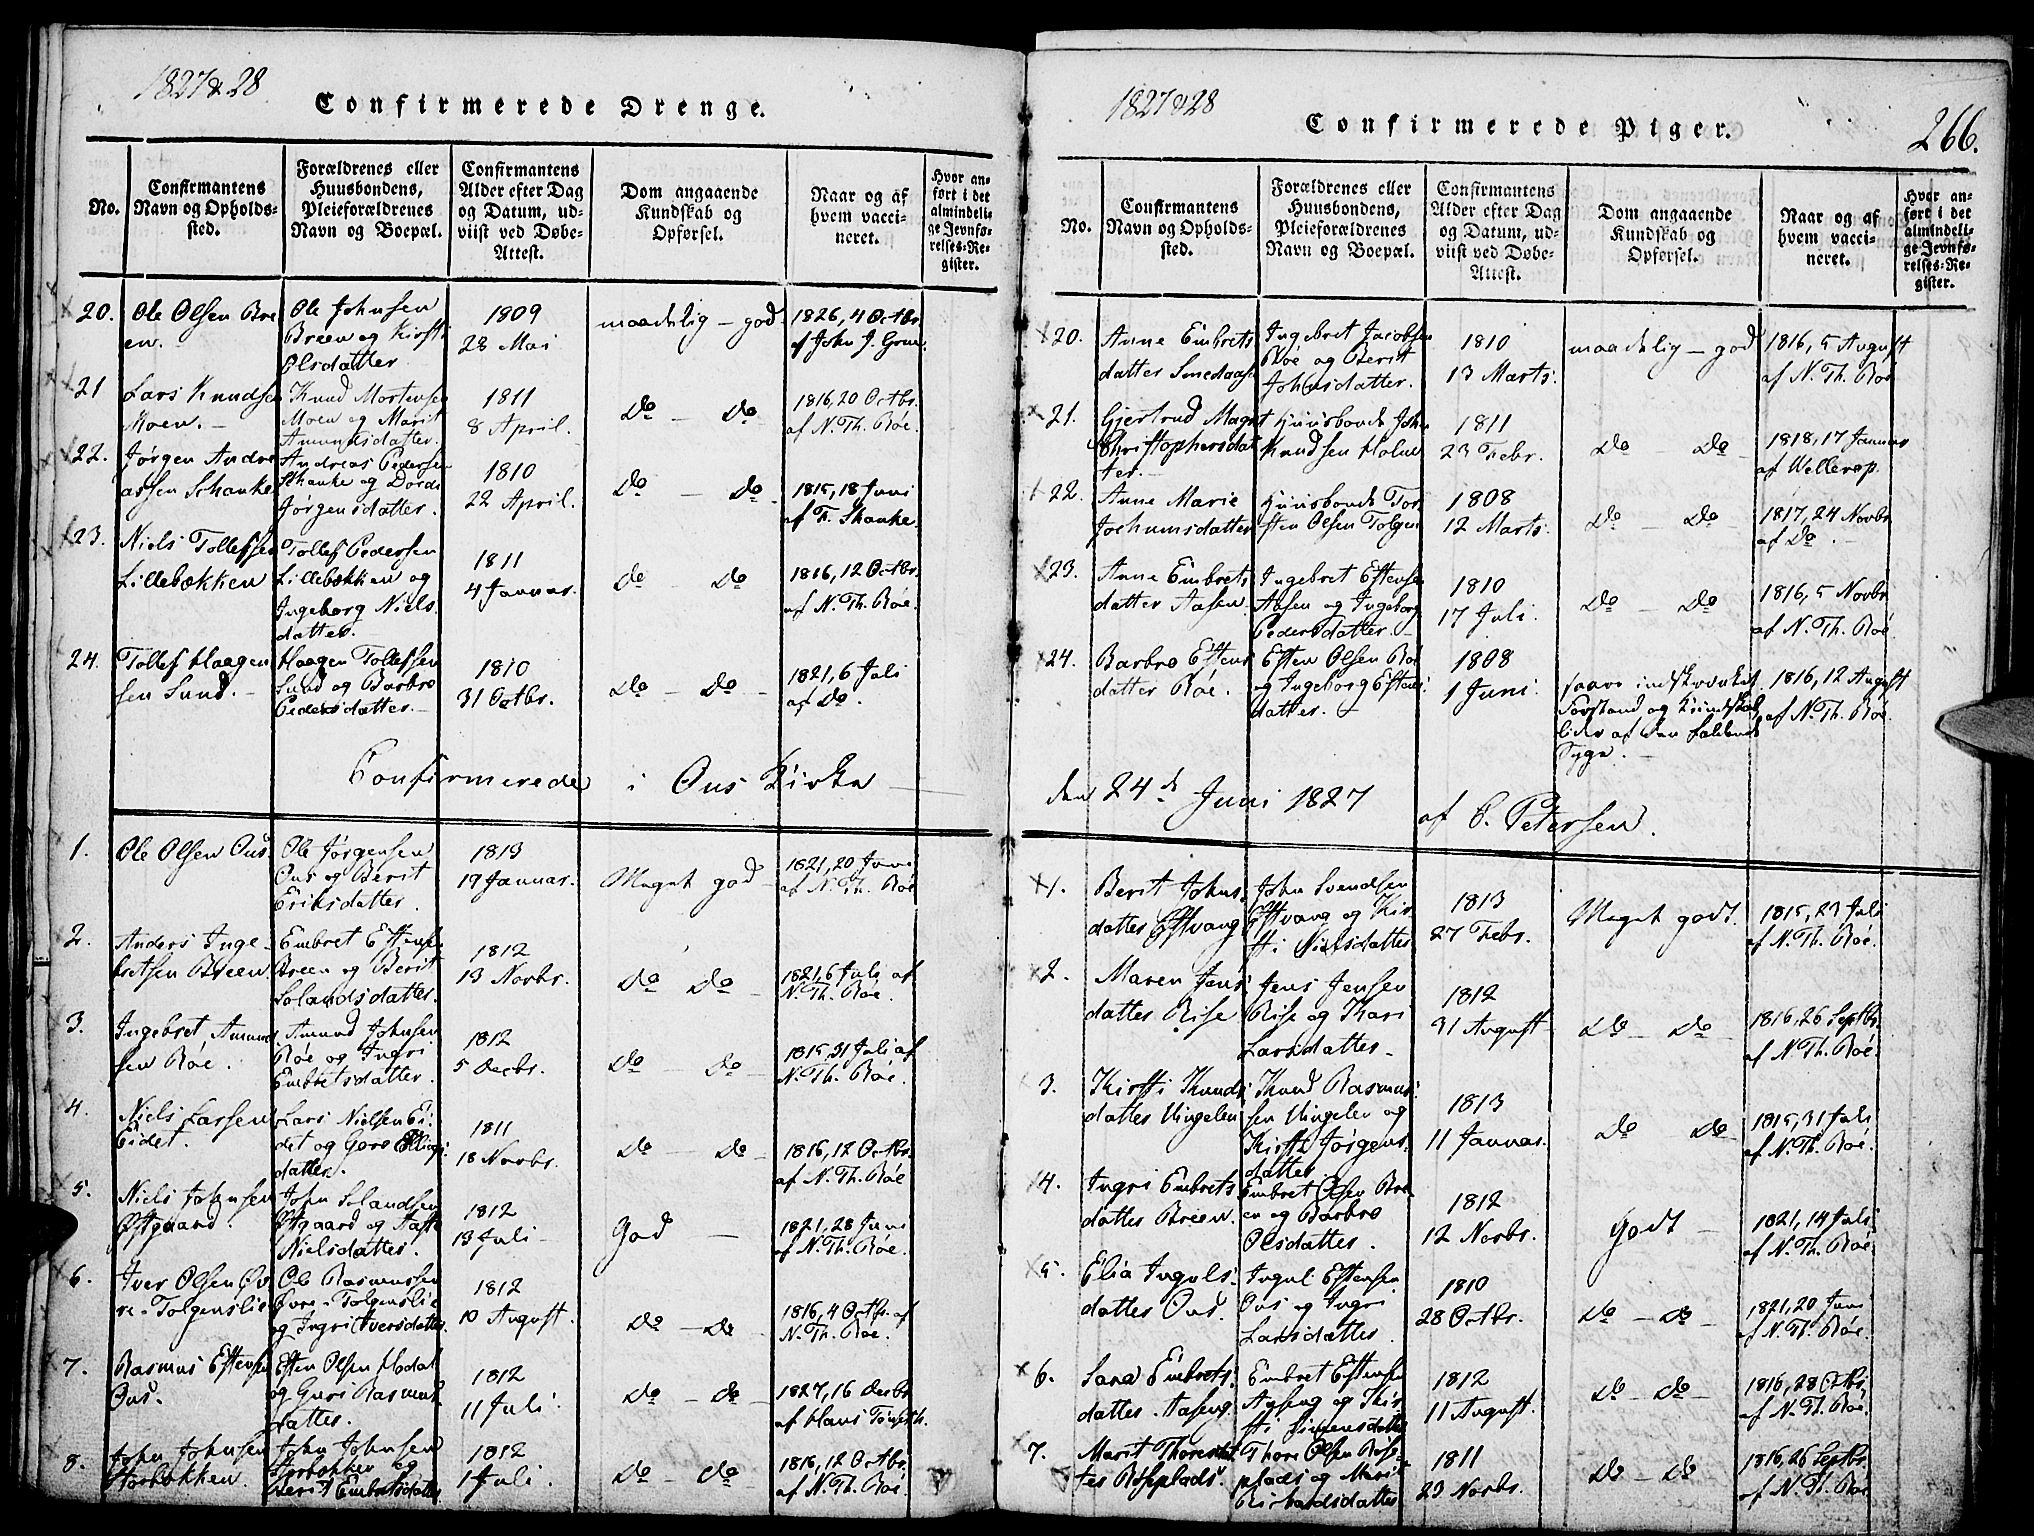 1827 & 28
Confirmerede Drenge.
No.
Confirmantens
Navn og Opholds-
sted.
Forældrenes eller
Huusbondens,
Pleieforældrenes
Navn og Boepæl.
Confirmantens
Alder efter Dag
og Datum, ud-
viist ved Døbe-
Attest.
Dom angaaende
Kundskab og
Opførsel.
Naar og af
hvem vacci-
neret.
Hvor an-
ført i det
almindeli-
ge Jevnfø-
relses-Re-
gister.
20.
Ole Olsen Bre
en.
Ole Johnsen
Breen og Kirsti
Olsdatter
1809
28 Mai
maadelig - god
1826, 4 Octbr.
af John J. Grue
21
Lars Knudsen
Moen. -
Knud Mortensen
Moen og Marit
Amundsdatter.
1811
8 April.
Do - Do
1816, 20 Octbr.
af N. Th. Røe.
22.
Jørgen Andre
assen Schanke
Andreas Pedersen
Schanke og Dordi
Jørgensdatter.
1810
22 April.
Do - Do
1815, 18 Juni
af F. Skanke.
23.
Niels Tollefsen
Lillebækken
Tollef Pedersen
Lillebækken og
Ingeborg Niels-
datter.
1811
4 Januar.
Do Do
1816, 12 Octbr.
af N. Th. Røe.
24.
Tollef Haagen
sen Lund. -
Haagen Tollefsen
Lund og Barbro
Pedersdatter. -
1810
31 Octbr.
Do - Do -
1821, 6 Juli
af Do.
Confirmerede i Ous Kirke
1.
Ole Olsen Ous.
Ole Jørgensen
Ous og Berit
Eriksdatter.
1813
19 Januar.
Meget god
1821, 20 Juni
af N. Th. Røe
2.
Anders Inge-
bretsen Breen
Embret Estensen
Breen og Berit
Solandsdatter.
1812
13 Novbr.
Do Do -
1821, 6 Juli af
N. Th. Røe.
3.
Ingebret Amund
sen Røe.
Amund Johnsen
Røe og Ingri
Embretsdatter.
1812
5 Decbr.
Do - Do -
1815, 31 Juli af
N. Th. Røe.
4.
Niels Larsen
Eidet.
Lars Nielsen Ei-
det og Goro
datter.
1811
18 Novbr.
Do - Do
1816, 12 Octbr.
af N. Th. Røe
5.
Niels Johnsen
Østgaard.
John Solandsen
Østgaard og
Nielsdatter.
1812
13 Juli -
God -
1821, 28 Juni
af N. Th. Røe.
6.
Iver Olsen Øv
re-Tolgenslie
Ole Rasmussen
Øvre-Tolgenslie
og Ingri Iversdatter
1812
10 August.
Do - Do
1816, 4 Octbr. af
N. Th. Røe.
7.
Rasmus Estensen
Ous.
Esten Olsen Hodal
og Guri Rasmus-
datter.
1812
11 Juli.
Do - Do -
1827, 16 Decbr
af Hans
8.
John Johnsen
Storbækken.
John Johnsen
Storbækken og
Berit Embretsdatter
1812
1 Juli.
Do - Do
1816, 12 Octbr.
af N. Th. Røe
1827 & 28
Confirmerede Piger.
266.
No.
Confirmantens
Navn og Opholds-
sted.
Forældrenes eller
Huusbondens,
Pleieforældrenes
Navn og Boepæl.
Confirmantens
Alder efter Dag
og Datum, ud-
viist ved Døbe-
Attest.
Dom angaaende
Kundskab og
Opførsel.
Naar og af
hvem vacci-
neret.
Hvor an-
ført i det
almindeli-
ge Jevnfø-
relses-Re-
gister.
20.
Anne Embrets
datter Smedaasen
Ingebret Jacobsen
Røe og Berit
Johnsdatter.
1810
13 Marts.
maadelig - god
1816, 5 August
af N. Th. Røe
21.
Gjertrud Magret
Christophersdat
ter. -
Huusbonde John
Knudsen Holm
1811
23 Febr.
Do - Do
1818, 17 Januar
af Wellerop.
22.
Anne Marie
Jochumsdatter
Huusbonde Tor
sten Olsen Tolgen
1808
12 Marts.
Do - Do
1817, 24 Novbr
af Do.
23.
Anne Embrets
datter Aasen
Ingebret Estensen
Aasen og Ingeborg
Pedersdatter. -
1810
17 Juli.
Do - Do
1816, 5 Novbr
af N. Th. Røe.
24.
Barbro Estens
datter Røe.
Esten Olsen Røe
og Ingeborg Estens
datter. -
1808
1 Juni.
saare indskrænket
Forstand og Kundskab,
lider af den faldende
Syge. -
1816, 12 August
af N. Th. Røe.
den 24de Juni 1827 af C. Petersen.
1.
Berit Johns-
datter Estvang
John Svendsen
Estvang og Kir-
sti Nielsdatter
1813
27 Febr.
Meget godt.
1815, 23 Juli
af N. Th. Røe.
2.
Maren Jens
datter Rise
Jens Jensen
Rise og Kari
Larsdatter -
1812
31 August
Do - Do -
1816, 26 Septbr.
af N. Th. Røe.
3.
Kirsti Knuds
datter Vingelen
Knud Rasmus-
sen Vingelen og
Kirsti Jørgens-
datter
1813
11 Januar.
Do Do
1815, 31 Juli
af N. Th. Røe.
4.
Ingri Embrets
datter Breen.
Embret Olsen Bre
en og Barbro
Olsdatter.
1812
12 Novbr.
Godt -
1821, 14 Juli
af N. Th. Røe.
5.
Elia Inguls-
datter Ous.
Ingul Estensen
Ous og Ingri
Larsdatter.
1810
28 Octbr.
Do - Do -
1821, 20 Juni
af N. Th. Røe.
6.
Sara Embrets-
datter Aaseng.
Embret Estensen
Aaseng og Kir-
sti Simensdatter
1812
11 August.
Do - Do -
1816, 28 Octbr.
af N. Th. Røe.
7.
Marit Thoresdat
ter Røseplads.
Thore Olsen Røse-
plads og Marit
Richardsdatter
1811
23 Novbr.
Do - Do
1816, 26 Septbr.
af N. Th. Røe